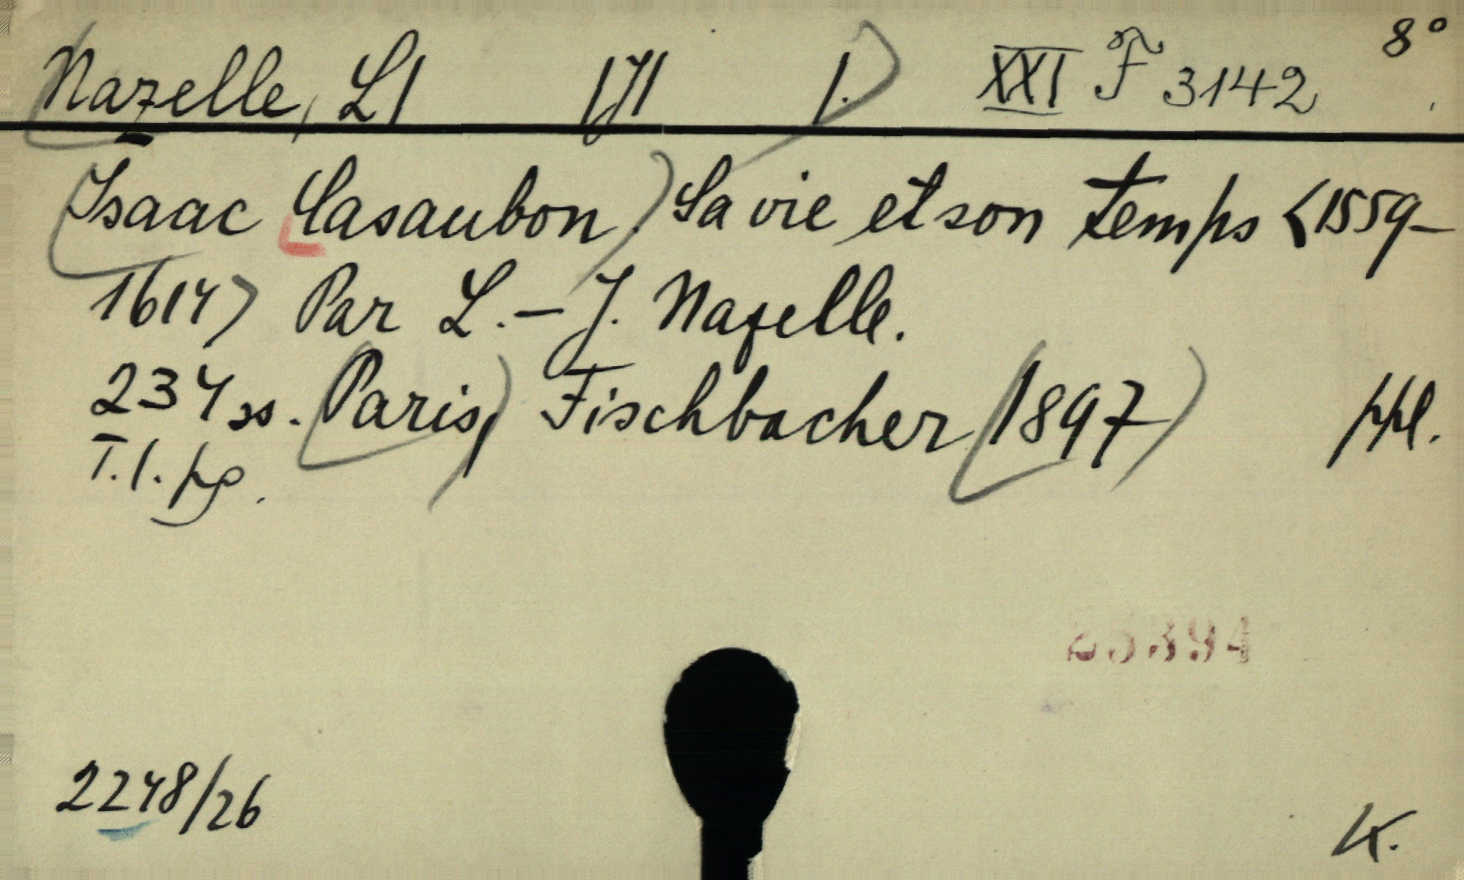 Nazelle, L| |J| |. XXI F 3142 8°
Isaac Casaubon. Sa vie et son temps <1559-
1614> Par L.-J. Nazelle.
234 ss. Paris, Fischbacher 1897 ppl.
T.l. pg.
2248/26
K.